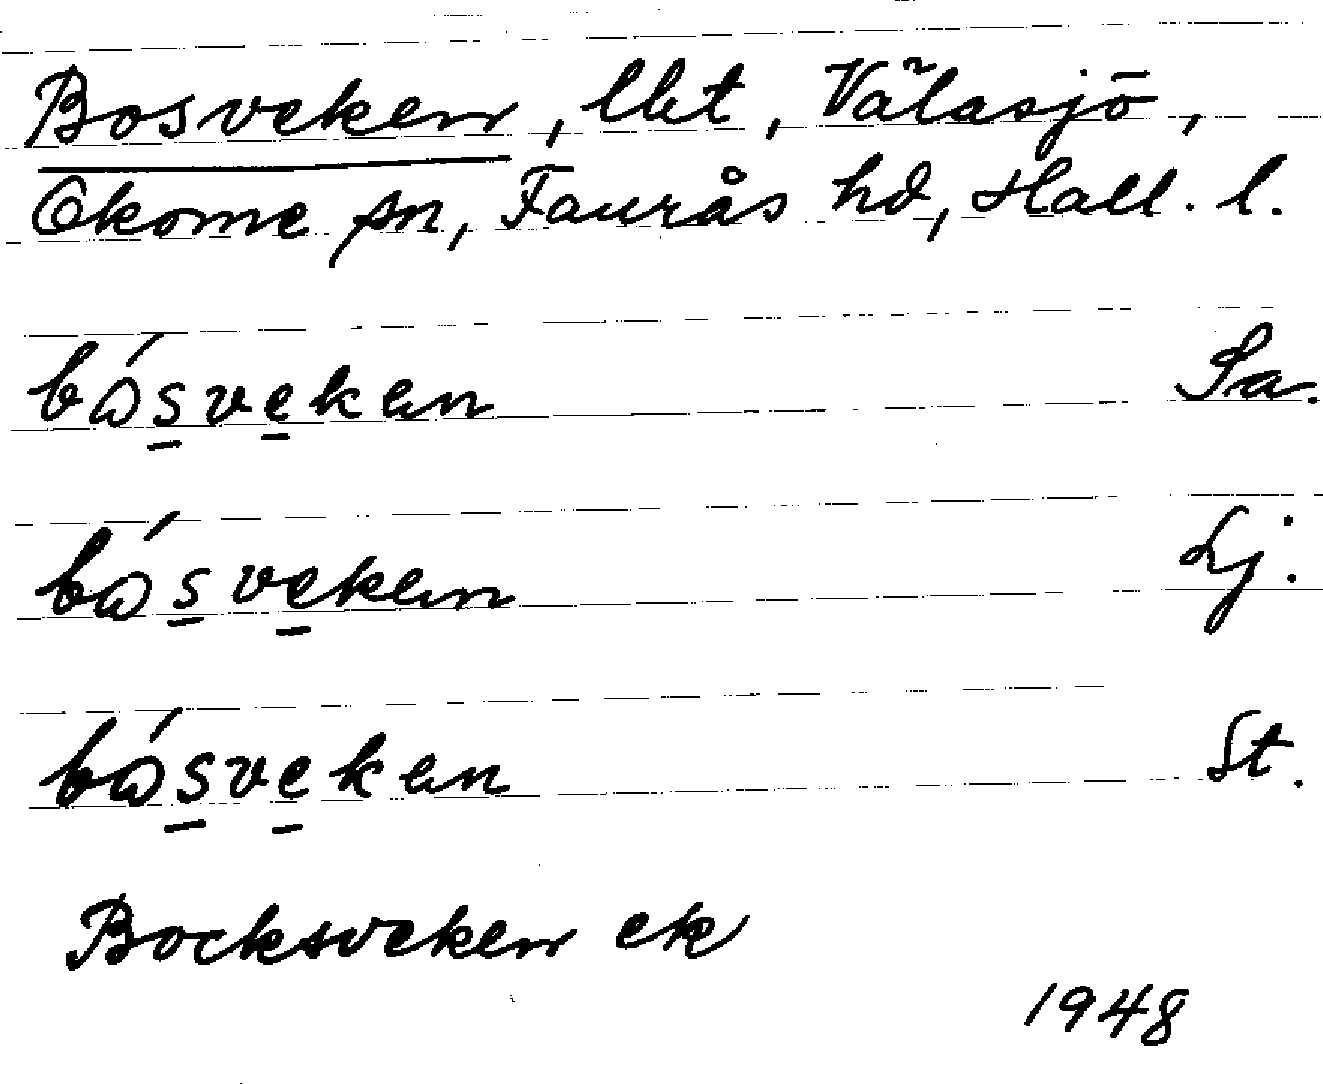 Bosveken, lht, Välasjö,
Okome sn, Faurås hd, Hall. l.
bósveken Sa.
bósveken Lj.
bósveken St.
Bocksveken ek
1948